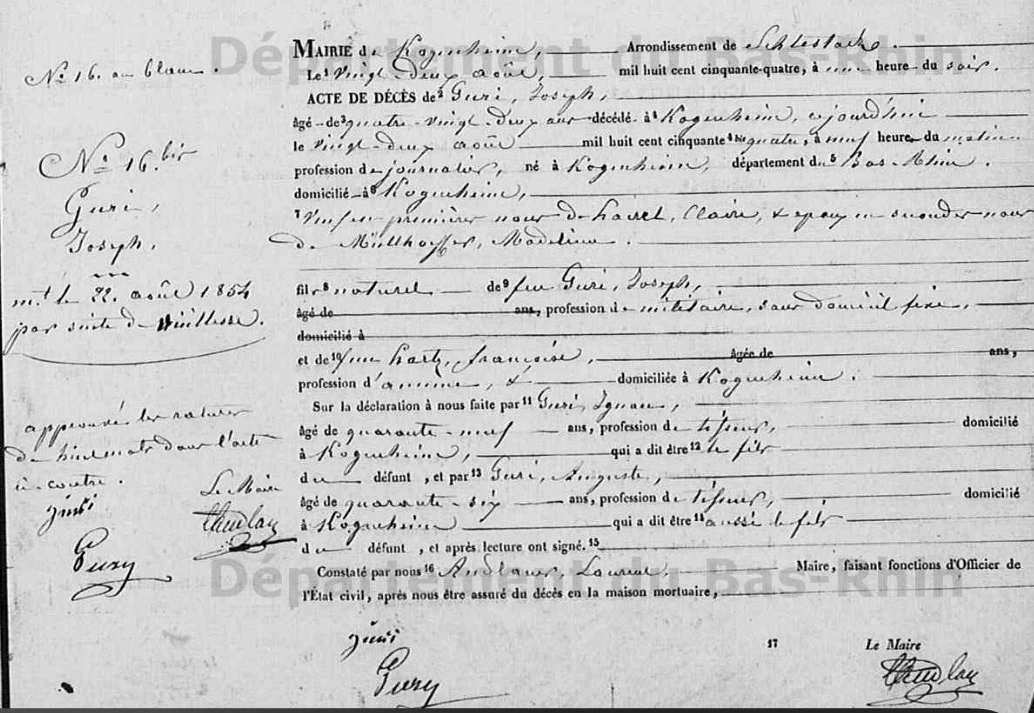 Département du Bas-Rhin
MAIRIE de Kogenheim, Arrondissement de Schlestadt.
Le¹ vingt-deux août, mil huit cent cinquante-quatre, à une heure du soir.
ACTE DE DÉCÈS de² Guri, Joseph,
âgé de³ quatre-vingt-deux ans décédé à⁴ Kogenheim, cejourd'hui
le vingt-deux août mil huit cent cinquante quatre, à neuf heures du matin
profession de journalier, né à Kogenheim, département du⁵ Bas-Rhin.
domicilié à⁶ Kogenheim,
⁷ Veuf en premières noces de Claire, & époux en secondes noces
de Müllhoffer, Madeleine.
fils⁸ naturel de⁹ feu Guri, Joseph,
âgé de ans, profession de militaire, sans domicile fixe,
domicilié à
et de¹⁰ feue Hartz, françoise, âgée de ans,
profession d'aucune, & domiciliée à Kogenheim.
Sur la déclaration à nous faite par¹¹ Guri, Ignace,
âgé de quarante-neuf ans, profession de tisseur, domicilié
à Kogenheim, qui a dit être¹² le fils
du défunt, et par¹³ Guri, Auguste,
âgé de quarante-six ans, profession de tisseur, domicilié
à Kogenheim qui a dit être¹⁴ aussi le fils
du défunt, et après lecture ont signé.¹⁵
Constaté par nous¹⁶ Andlauer, Laurent, Maire, faisant fonctions d'Officier de
l'État civil, après nous être assuré du décès en la maison mortuaire,
Département du Bas-Rhin
17 Le Maire
Gury
N.° 16 au blanc.
N.° 16.bis
Guri,
Joseph,
m.t le 22. août 1854
par suite de vieillesse.
approuvés les ratures
de mots dans l'acte
ci-contre.
Le Maire
Gury